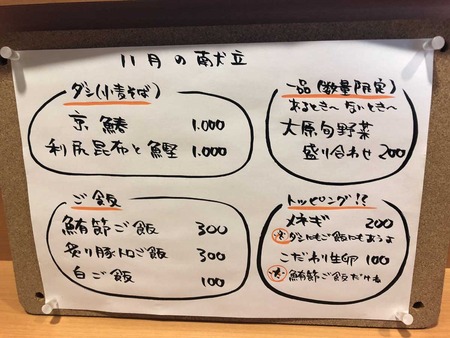 11月の献立
ダシ(小麦そば)
京鰆 1.000
利尻昆布と鰹 1.000
一品(数量限定)
あるとき〜ないとき〜
大原旬野菜
盛り合わせ 200
ご飯
鮪節ご飯 300
炙り豚トロご飯 300
白ご飯 100
トッピング!?
メネギ 200
ダシにもご飯にもあうよ
こだわり生卵 100
鮪節ご飯だけよ